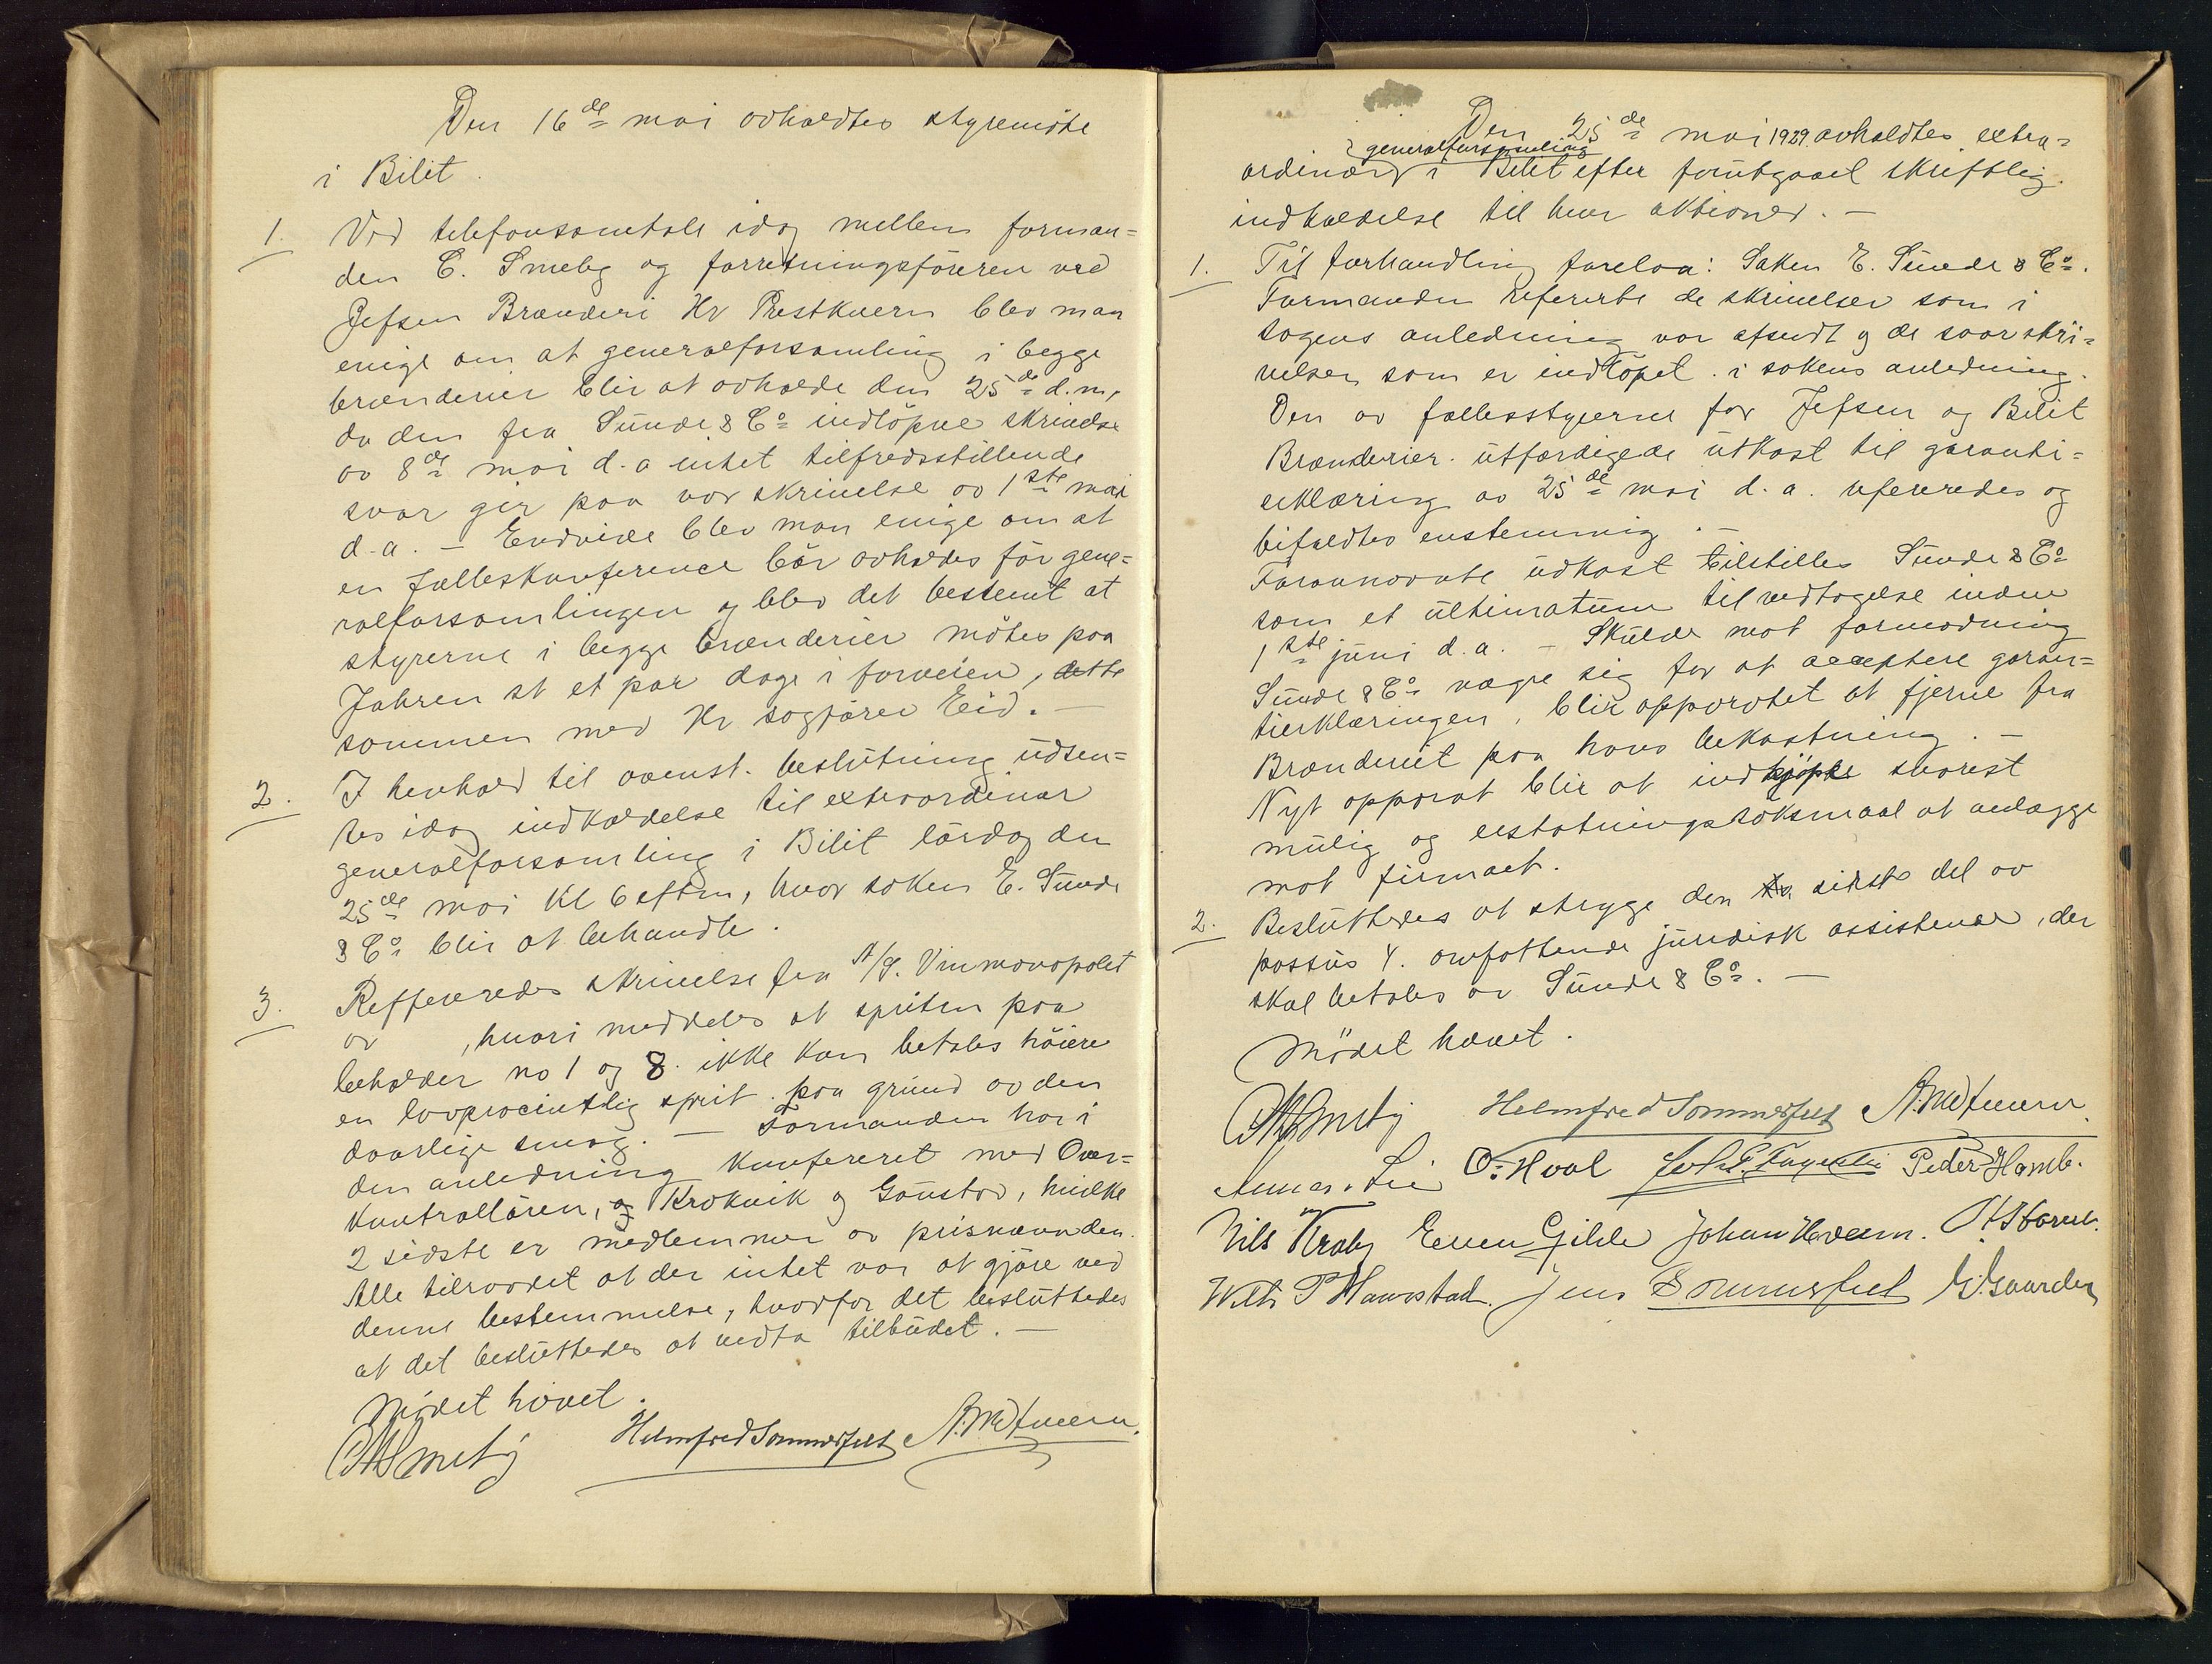 Den 16de mai avholdtes styremöte
i Bilit.
1. Ved telefonsamtale idag mellem forman=
den C. Smeby og forretningsföreren ved
Jefsen Brænderi Hr Prestkvern blev man
enige om at generalforsamling i begge
brænderier blir at avholde den 25de d.m,
da den fra Sunde & Co indlöpne skrivelse
av 8de mai d.a intet tilfredsstillende
svar gir paa vor skrivelse av 1ste mai
d.a. — Endvidre blev man enige om at
en Felleskonference bör avholdes för gene=
ralforsamlingen og blev det bestemt at
styrerne i begge brænderier mötes paa
Jahren st et par dage i forveien, dette
sammen med Hr sagförer Eid. —
2. I henhold til ovenst. beslutning udsen=
tes idag indkaldelse til extraordinær
generalforsamling i Bilit lördag den
25de mai Kl 6 eftm, hvor saken E. Sunde
& Co blir at behandle.
3. Reffereredes skrivelse fra A/S. Vinmonopolet
av , hvori meddeles at spriten paa
beholder no 1 og 8. ikke kan betales höiere
en lavprocentlig sprit. paa grund av den
daarlige smag. — Formanden har i
den anledning konfereret med Over=
kontrollören, og Krokvik og Gaustad, hvilke
2 sidste er medlemmer av prisnævnden.
Alle tilraadet at der intet var at gjöre ved
denne bestemmelse, hvorfor det besluttedes
at det besluttedes at vedta tilbudet. —
Mödet hævet.
Smeby Helmfred Sommerfelt
Den 25de mai 1929. avholdtes extra=
generalforsamling
ordinær i Bilit efter forutgaael skriftlig
indkaldelse til hver aktionær. —
1. Til forhandling forelaa: Saken E. Sunde & Co.
Formanden refererte de skrivelser som i
sagens anledning var afsendt og de svarskri=
velser som er indlöpet. i sakens anledning.
Den av fællesstyrerne for Jefsen og Bilit
Brænderier. utfærdigede utkast til garanti=
erklæring av 25de mai d.a. refereredes og
bifaldtes enstemmig. —
Foranнævnte udkast tilstilles Sunde & Co
som et ultimatum til vedtagelse inden
1ste juni d.a. — Skulde mot formodning
Sunde & Co vægre sig for at acceptere garan=
tierklæringen, blir apparatet at fjerne fra
Brænderiet paa hans bekostning. —
Nyt apparat blir at indkjöpke snarest
mulig og erstatningssöksmaal at anlægge
mot firmaet.
2. Besluttedes at stryge den sidste del av
passus 4. omfattende juridisk assistense, der
skal betales av Sunde & Co. —
Mödet hævet.
Smeby Helmfred Sommerfelt
Lie O. Hval Peder Hamb.
Nils Kraby Even Gihle Johan Hveem.
P Haverstad. Jens Sommerfelt Gaarder